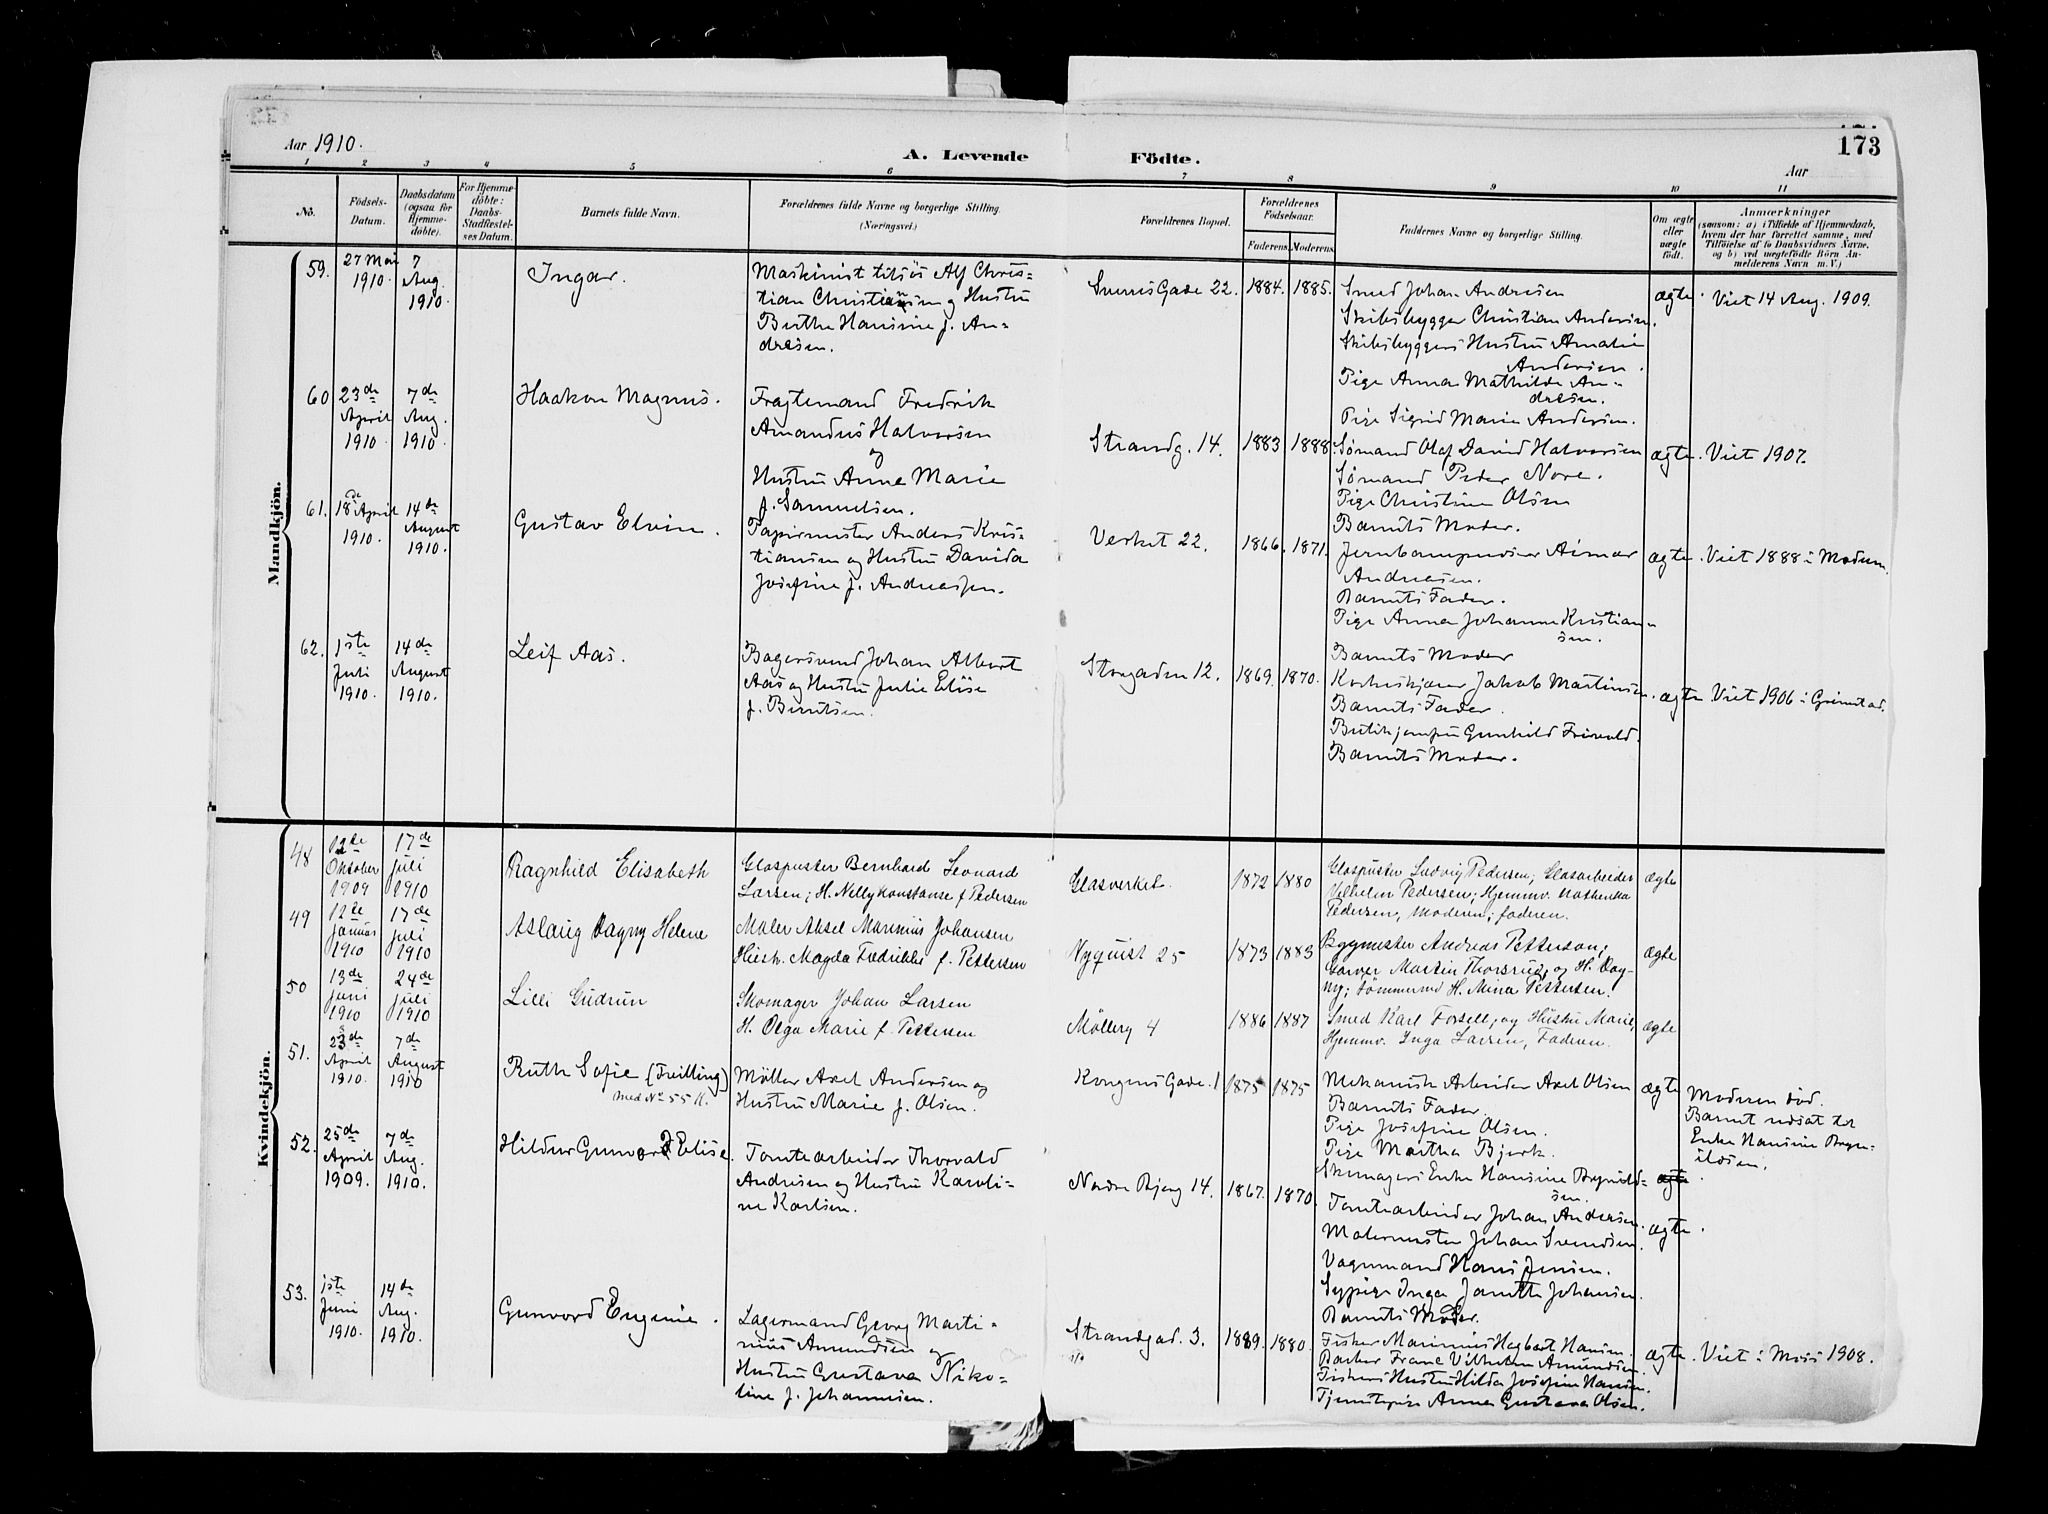 173
Aar 1910.
A. Levende Födte.
Aar
1 2 3 4 5 6 7 8 9 10 11
No.
Födsels-Datum.
Daabsdatum (ogsaa for Hjemmedöbte).
For Hjemmedöbte: Daabs-Stadfæstelses Datum.
Barnets fulde Navn.
Forældrenes fulde Navne og borgerlige Stilling. (Næringsvei.)
Forældrenes Bopæl.
Forældrenes Födselsaar.
Faderens. Moderens.
Faddernes Navne og borgerlige Stilling.
Om ægte eller uægte födt.
Anmærkninger
(saasom: a) i Tilfælde af Hjemmedaab, hvem der har forrettet samme, med Tilföielse af to Daabsvidners Navne, og b) ved uægtefödte Börn Anmelderens Navn m. V.)
Mandkjön.
59.
27 Mai
1910.
7
Aug.
1910.
Ingar.
Maskinist tilsjös Alf Chris-
tian Christiansen og Hustru
Berthe Hansine f. An-
dresen.
Sverres Gade 22.
1884. 1885.
Smed Johan Andresen
Skibsbygger Christian Andersen.
Skibsbyggers Hustru Amalie
Andersen.
Pige Anna Mathilde An-
dresen.
Pige Sigrid Marie Andersen.
ægte.
Viet 14 Aug. 1909.
60
23de
April
1910.
7de
Aug.
1910.
Haakon Magnus.
Fragtemand Fredrik
Amandus Halvorsen
og
Hustru Anne Marie
f. Samuelsen.
Strandg. 14.
1883 1888.
Sömand Olaf David Halvorsen
Sömand Peder Nore.
Pige Christine Olsen
Barnets Moder.
ægte.
Viet 1907.
61.
18de April
1910.
14de
August
1910.
Gustav Elvin.
Papirmester Anders Kris-
tiansen og Hustru Davida
Josefine f. Andreassen.
Verket 22.
1866. 1871.
Andreasen.
Barnets Fader.
Pige Anna Johanne Kristian-
sen.
Barnets Moder
ægte.
Viet 1888 i Modum.
62.
1ste
Juli
1910.
14de
August
1910.
Leif Aas.
Bagersvend Johan Albert
Aas og Hustru Julie Elise
f. Berntsen.
Storgaden 12.
1869. 1870.
Jakob Martinsen.
Barnets Fader.
Gunhild Frivold.
Barnets Moder.
ægte
Viet 1906 i Grimstad.
Kvindekjön.
48
12te
Oktober
1909
17de
juli
1910
Ragnhild Elisabeth
Glaspuster Bernhard Leonard
Larsen; H. Nelly Konstanse f Pedersen
Glasverket.
1872 1880
Glaspuster Ludvig Pedersen; Glasarbeider
Vilhelm Pedersen; Hjemmv. Mathenka
Pedersen, Moderen; faderen.
ægte
49
12te
januar
1910
17de
juli
1910
Aslaug Dagny Helene
Maler Aksel Marinius Johansen
Hustr. Magda Fredrikke f. Pettersen
Nyquist 25
1873 1883
Bygmester Andreas Petterson;
Garver Martin Thorsrud, og H. Dag-
ny; tömmermd H. Mina Pettersen.
ægte
50
13de
juni
1910
24de
juli
1910
Lilli Gudrun
Skomager Johan Larsen
H. Olga Marie f. Pettersen
Mölleng 4
1886 1887
Smed Karl Forsell; og Hustru Marie,
Hjemmv. Inga Larsen, Faderen.
ægte
51.
23de
April
1910.
7de
August
1910
Ruth Sofie (Tvilling)
med No 55 K.
Möller Axel Andersen og
Hustru Marie f. Olsen.
Kongens Gade. 1
1875 1875
Mekanisk Arbeider Axel Olsen
Barnets Fader.
Pige Josefine Olsen.
Pige Martha Bjerk.
Skomagers Enke Hansine Brynild-
sen.
ægte
Moderen död.
Barnet udsat til
Enke Hansine Bryn-
ildsen.
52.
25de
April
1909.
7de
Aug.
1910.
Hildur Gunvor Elise.
Tomtearbeider Thorvald
Andersen og Hustru Karoli-
ne Karlsen.
Nordre Bjerg 14.
1867. 1870.
ægte
Tomtearbeider Johan Andersen.
Malermester Johan Svendsen.
Vognmand Hans Jensen.
Sypige Inga Janette Johansen.
Barnets Moder.
ægte.
53.
1ste
Juni
1910.
14de
Aug.
1910.
Gunvord Eugenie.
Lagermand Georg Marti-
nius Amundsen og
Hustru Gustava Niko-
line f. Johannesen.
Strandgad. 3.
1889. 1880.
Fisker Marinius Hagbart Hansen.
Barber Franc Vilhelm Amundsen
Fiskers Hustru Hilda Josefine Hansen.
Tjenestepige Anna Gustava Olsen.
ægte.
Viet i Moss 1908.